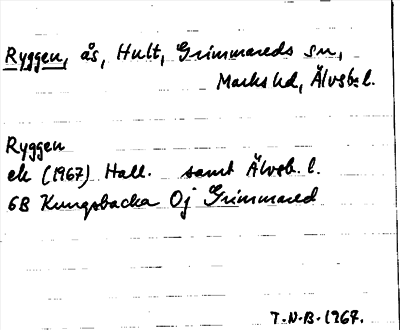 Ryggen, ås, Hult, Grimmareds sn,
Marks hd, Älvsb. l.
Ryggen
ek (1967) Hall. samt Älvsb. l.
6B Kungsbacka Oj Grimmared
T.N.B. 1967.